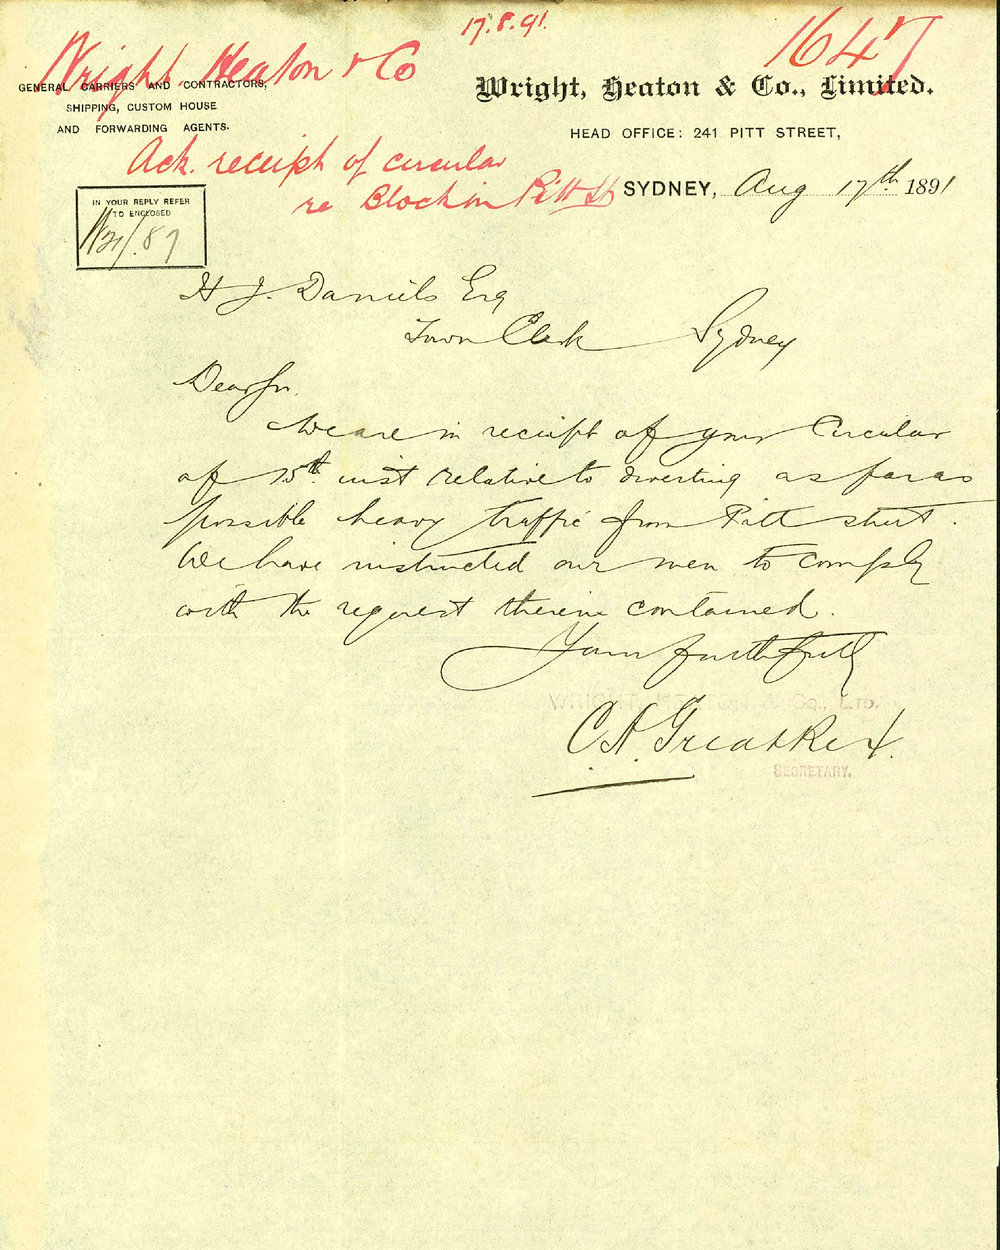 17.8.91.
1647
Wright Heaton & Co
GENERAL CARRIERS AND CONTRACTORS,
SHIPPING, CUSTOM HOUSE
AND FORWARDING AGENTS.
Wright, Heaton & Co., Limited.
HEAD OFFICE: 241 PITT STREET,
Ack. receipt of circular
re Block in Pitt St
SYDNEY, Aug 17th 1891
IN YOUR REPLY REFER
TO ENCLOSED
/87
H J. Daniels Esq
Town Clerk Sydney
Dear Sir.
We are in receipt of your Circular
of 15th. inst relative to diverting as far as
possible heavy traffic from Pitt street.
We have instructed our men to comply
with the request therein contained.
Yours faithfully
WRIGHT, HEATON & Co., LTD.
C. A. Greatrex.
SECRETARY.